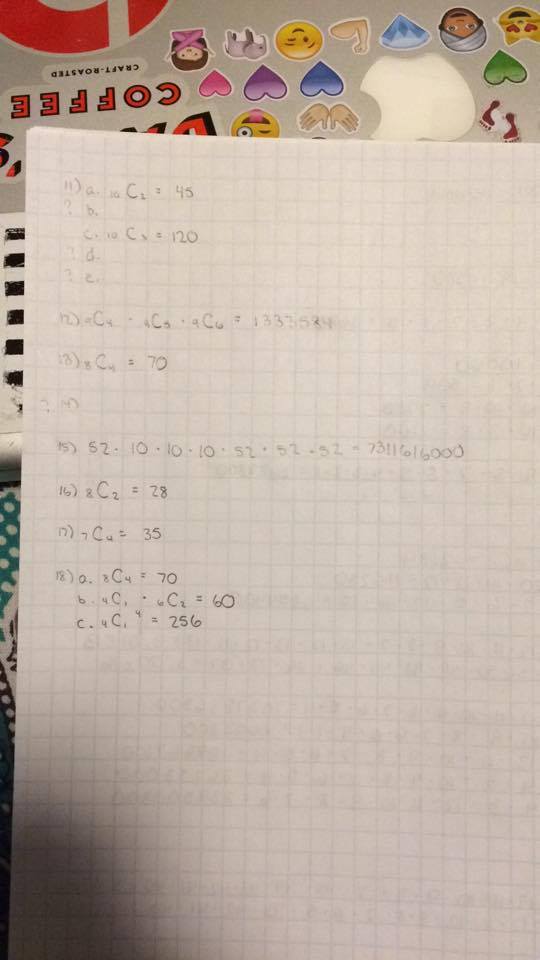 CRAFT-ROASTED
COFFEE
11) a. ₁₀C₂ = 45
? b.
c. ₁₀C₃ = 120
? d.
? e.
12) ₉C₄ · ₉C₅ · ₉C₆ = 1333584
13) ₈C₄ = 70
? 14)
15) 52 · 10 · 10 · 10 · 52 · 52 · 52 = 7311616000
16) ₈C₂ = 28
17) ₇C₄ = 35
18) a. ₈C₄ = 70
b. ₄C₁ · ₆C₂ = 60
c. ₄C₁⁴ = 256